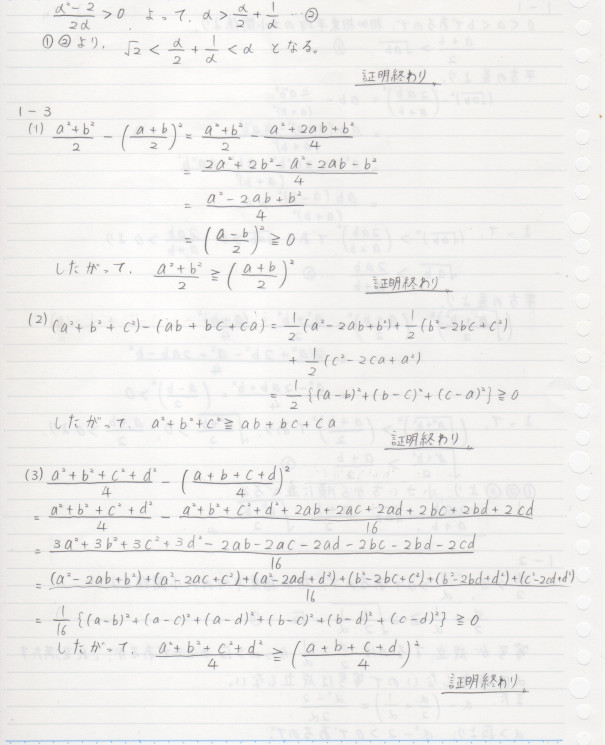 (α²-2)/2α > 0 . よって、 α > α/2 + 1/α … ②
①②より、 √2 < α/2 + 1/α < α となる。
証明終わり
1-3
(1) (a²+b²)/2 - ((a+b)/2)² = (a²+b²)/2 - (a²+2ab+b²)/4
= (2a²+2b²-a²-2ab-b²)/4
= (a²-2ab+b²)/4
= ((a-b)/2)² ≧ 0
したがって、 (a²+b²)/2 ≧ ((a+b)/2)²
証明終わり
(2) (a²+b²+c²)-(ab+bc+ca) = 1/2(a²-2ab+b²)+1/2(b²-2bc+c²)
+1/2(c²-2ca+a²)
= 1/2{(a-b)²+(b-c)²+(c-a)²} ≧ 0
したがって a²+b²+c² ≧ ab+bc+ca
証明終わり
(3) (a²+b²+c²+d²)/4 - ((a+b+c+d)/4)²
= (a²+b²+c²+d²)/4 - (a²+b²+c²+d²+2ab+2ac+2ad+2bc+2bd+2cd)/16
= (3a²+3b²+3c²+3d²-2ab-2ac-2ad-2bc-2bd-2cd)/16
= ((a²-2ab+b²)+(a²-2ac+c²)+(a²-2ad+d²)+(b²-2bc+c²)+(b²-2bd+d²)+(c²-2cd+d²))/16
= 1/16{(a-b)²+(a-c)²+(a-d)²+(b-c)²+(b-d)²+(c-d)²} ≧ 0
したがって (a²+b²+c²+d²)/4 ≧ ((a+b+c+d)/4)²
証明終わり